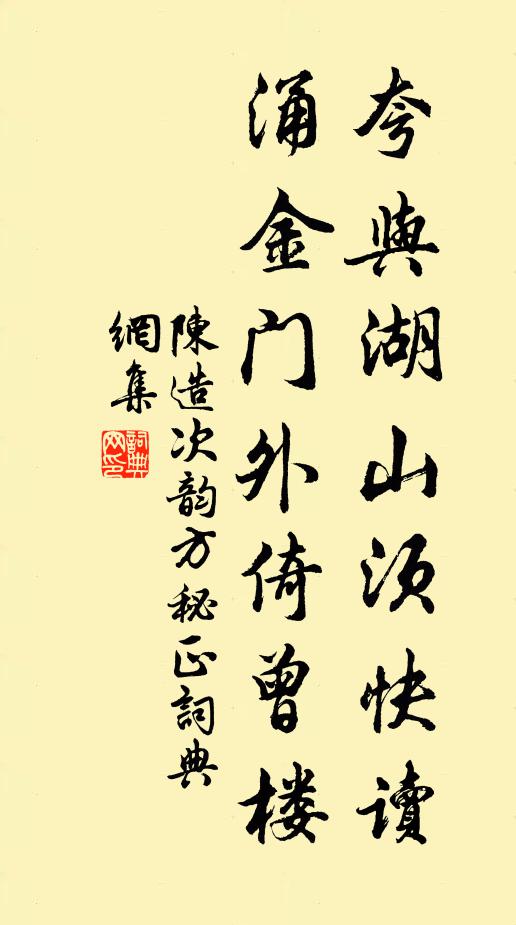 夸與湖山须快讀
涌金门外倚曾楼
陳造次韵方秘正詞典
網集
詞典
网印